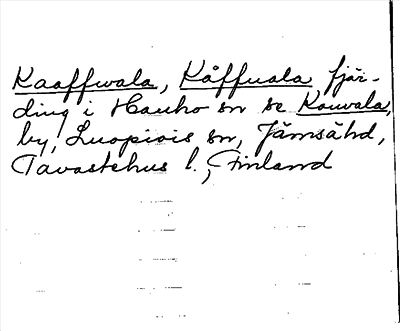 Kaaffwala, Kåffuala, fjär-
ding i Hauho sn se Kouvala,
by, Luopiois sn, Jämsä hd,
Tavastehus l., Finland